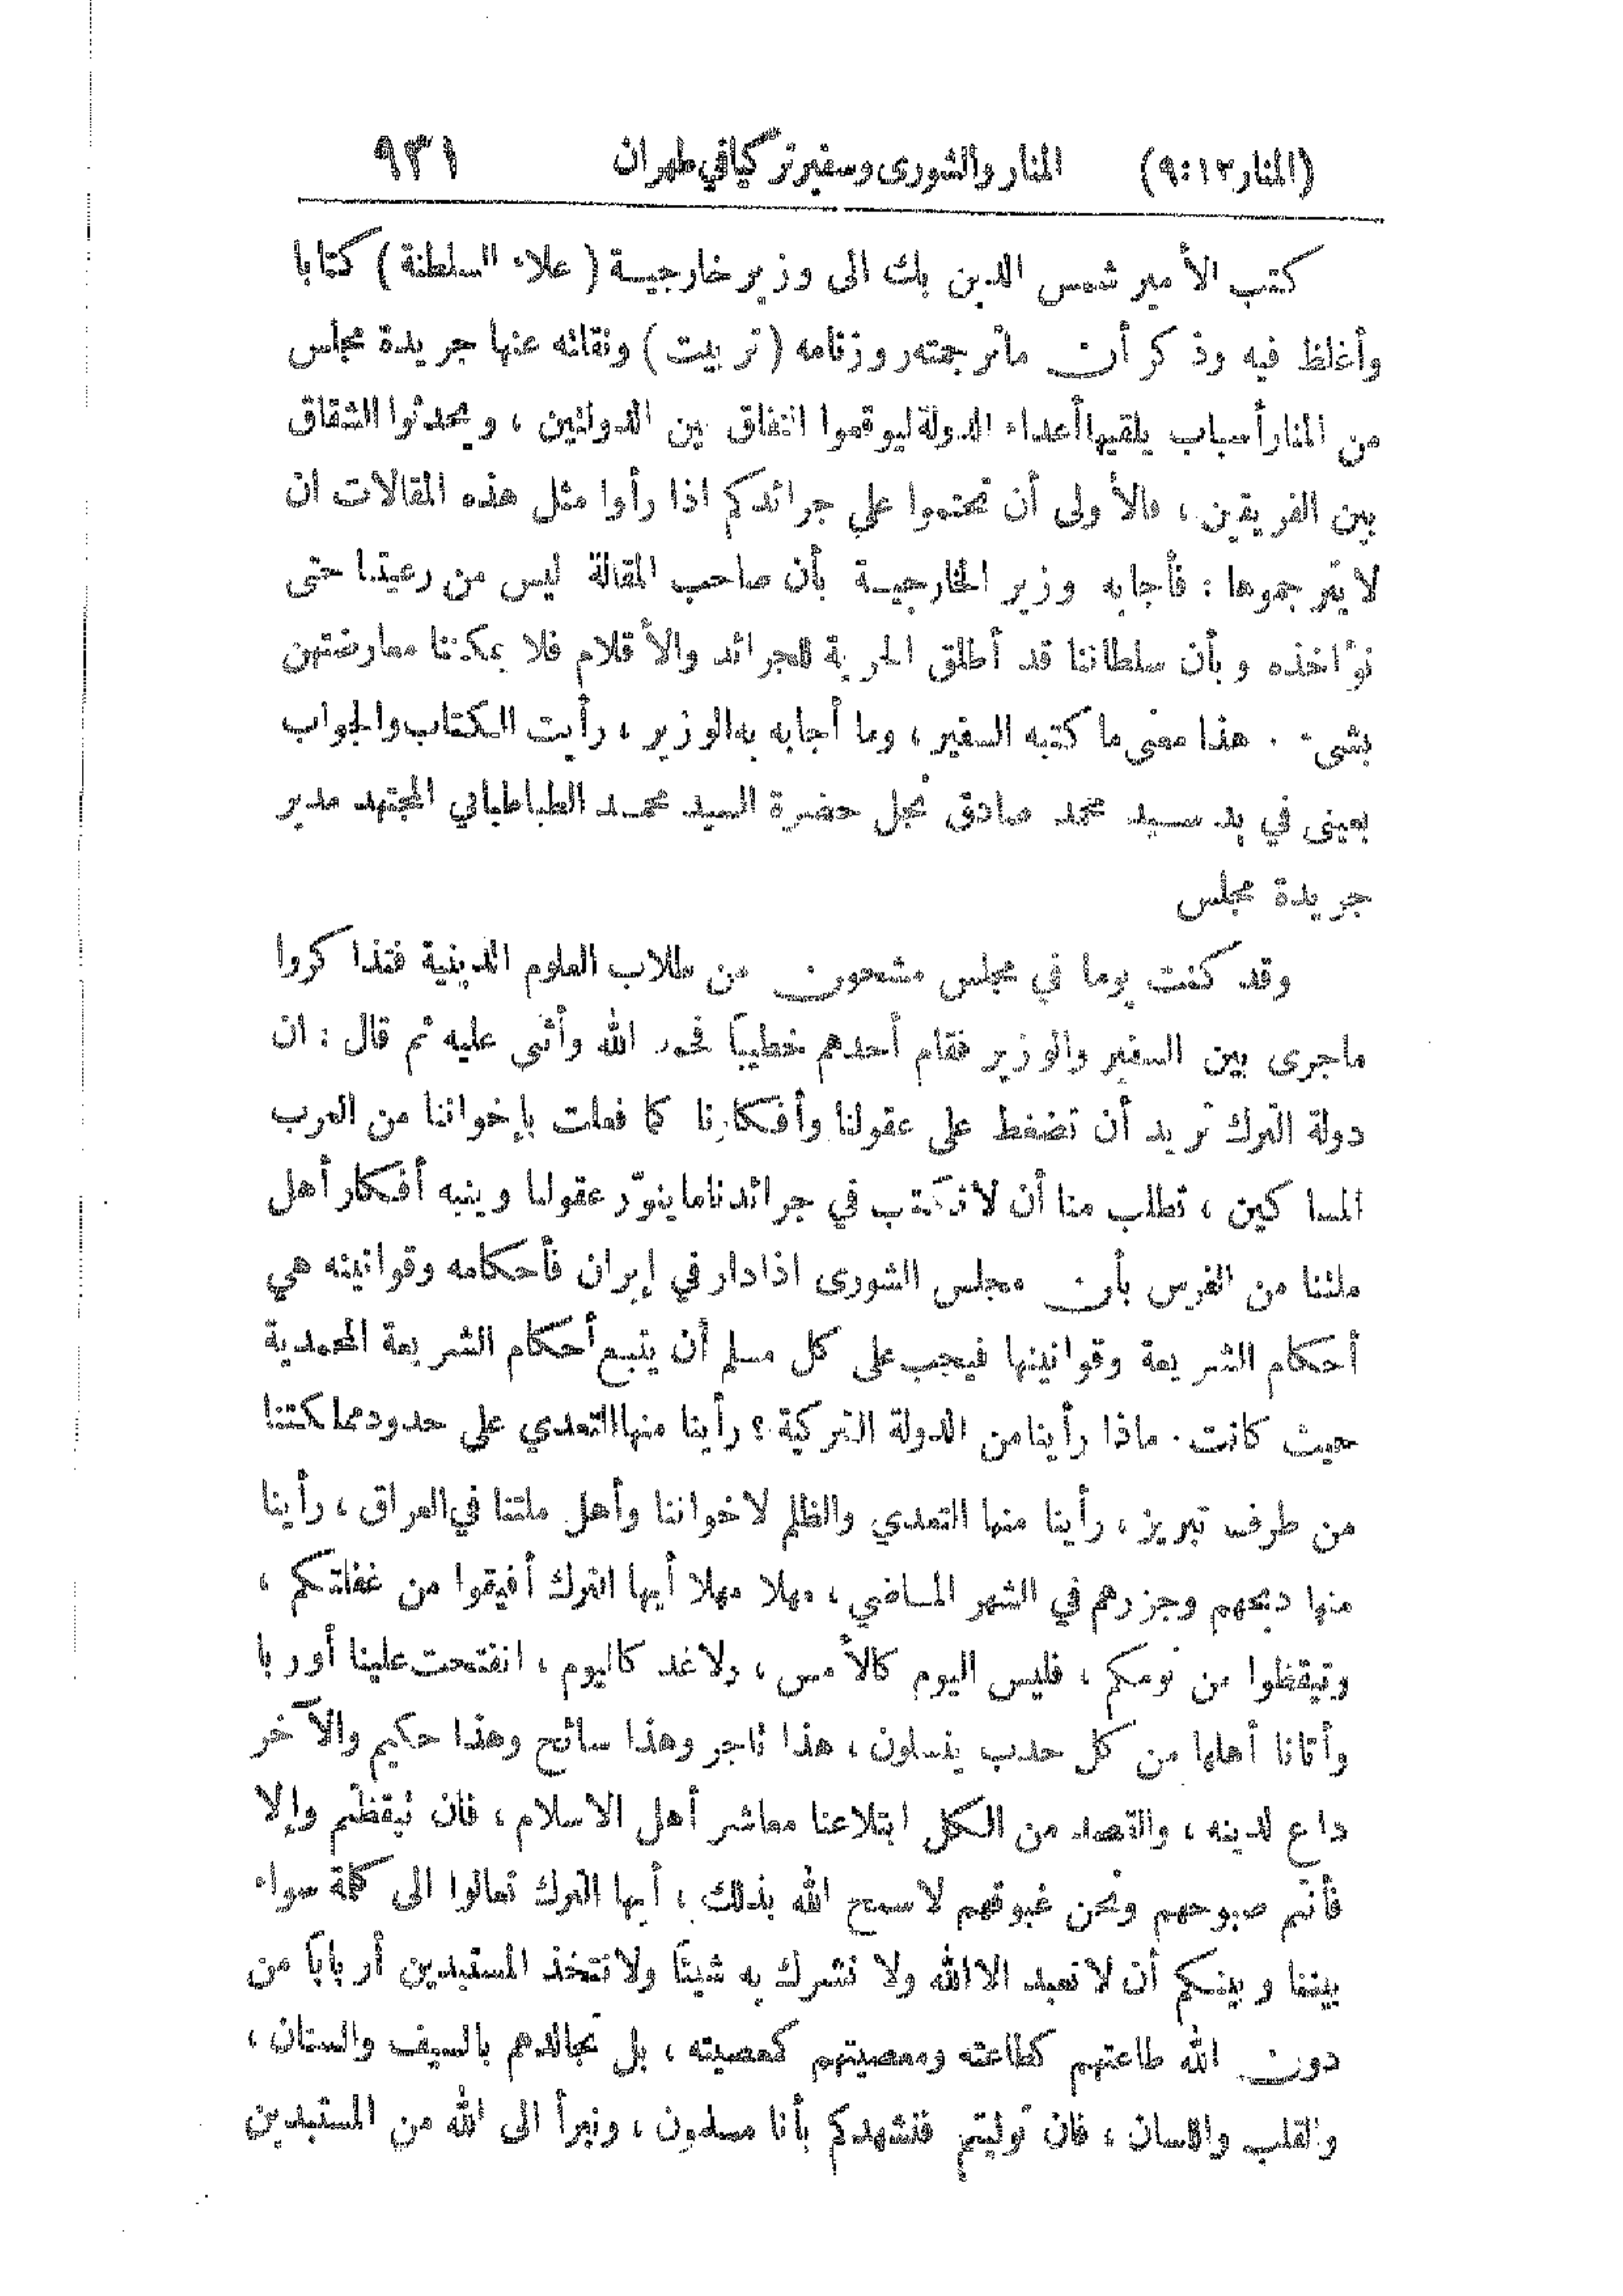 (المنار ٩:١٢) المنار والشورى وسفير تركيا في طهران ٩٣١
كتب الأمير شمس الدين بك الى وزير خارجيـة ( علاء السلطنة ) كتابا
وأغلظ فيه وذكر أن ماترجمته روزنامه ( تربيت ) ونقلته عنها جريدة مجلس
من المنار أسباب يلقيها أعداء الدولة ليوقموا اتفاق بين الدولتين ، ويحدثوا الشقاق
بين الفريقين ، فالأولى أن تختموا على جرائدكم اذا رأوا مثل هذه المقالات ان
لايترجموها : فأجابه وزير الخارجيـة بأن صاحب المقالة ليس من رعيتنا حتى
نؤاخذه وبأن سلطاننا قد أطلق الحرية للجرائد والأقلام فلا يمكننا معارضتهن
بشيء . هذا معنى ما كتبه السفير ، وما أجابه به الوزير ، رأيت الكتاب والجواب
بعيني في يد سـيد محمد صادق نجل حضرة السيد محمـد الطباطبائي المجتهد مدير
جريدة مجلس
وقد كنت يوما في مجلس مشحون من طلاب العلوم الدينية فتذاكروا
ماجرى بين السفير والوزير فقام أحدهم خطيباً فحمد الله وأثنى عليه ثم قال : ان
دولة الترك تريد أن تضغط على عقولنا وأفكارنا كما فعلت بإخواننا من العرب
المساكين ، تطلب منا أن لانكتب في جرائدنا ماينوّر عقولنا وينبه أفكار أهل
ملتنا من الفرس بأن مجلس الشورى اذا دار في إيران فأحكامه وقوانينه هي
أحكام الشريعة وقوانينها فيجب على كل مسلم أن يتبع أحكام الشريعة المحمدية
حيث كانت . ماذا رأينا من الدولة التركية ؟ رأينا منها التعدي على حدود مملكتنا
من طرف تبريز ، رأينا منها التعدي والظلم لاخواننا وأهل ملتنا في العراق ، رأينا
منها ذبحهم وجزرهم في الشهر المـاضي ، مهلا مهلا أيها الترك أفيقوا من غفلتكم ،
وتيقظوا من نومكم ، فليس اليوم كالأمس ، ولا غد كاليوم ، انفتحت علينا أوربا
وأتانا أهلها من كل حدب ينسلون ، هذا تاجر وهذا سائح وهذا حكيم والآخر
داع لدينه ، والقصد من الكل ابتلاعنا معاشر أهل الاسلام ، فان تيقظتم وإلا
فأنتم صبوحهم ونحن غبوقهم لاسمح الله بذلك ، أيها الترك تعالوا الى كلمة سواء
بيننا وبينكم أن لانعبد الا الله ولا نشرك به شيئاً ولانتخذ المستبدين أرباباً من
دون الله طاعتهم كطاعته ومعصيتهم كمعصيته ، بل نجالدهم بالسيف والسنان ،
والقلب واللسان ، فان توليتم فنشهدكم بأنا مسلمون ، ونبرأ الى الله من المستبدين